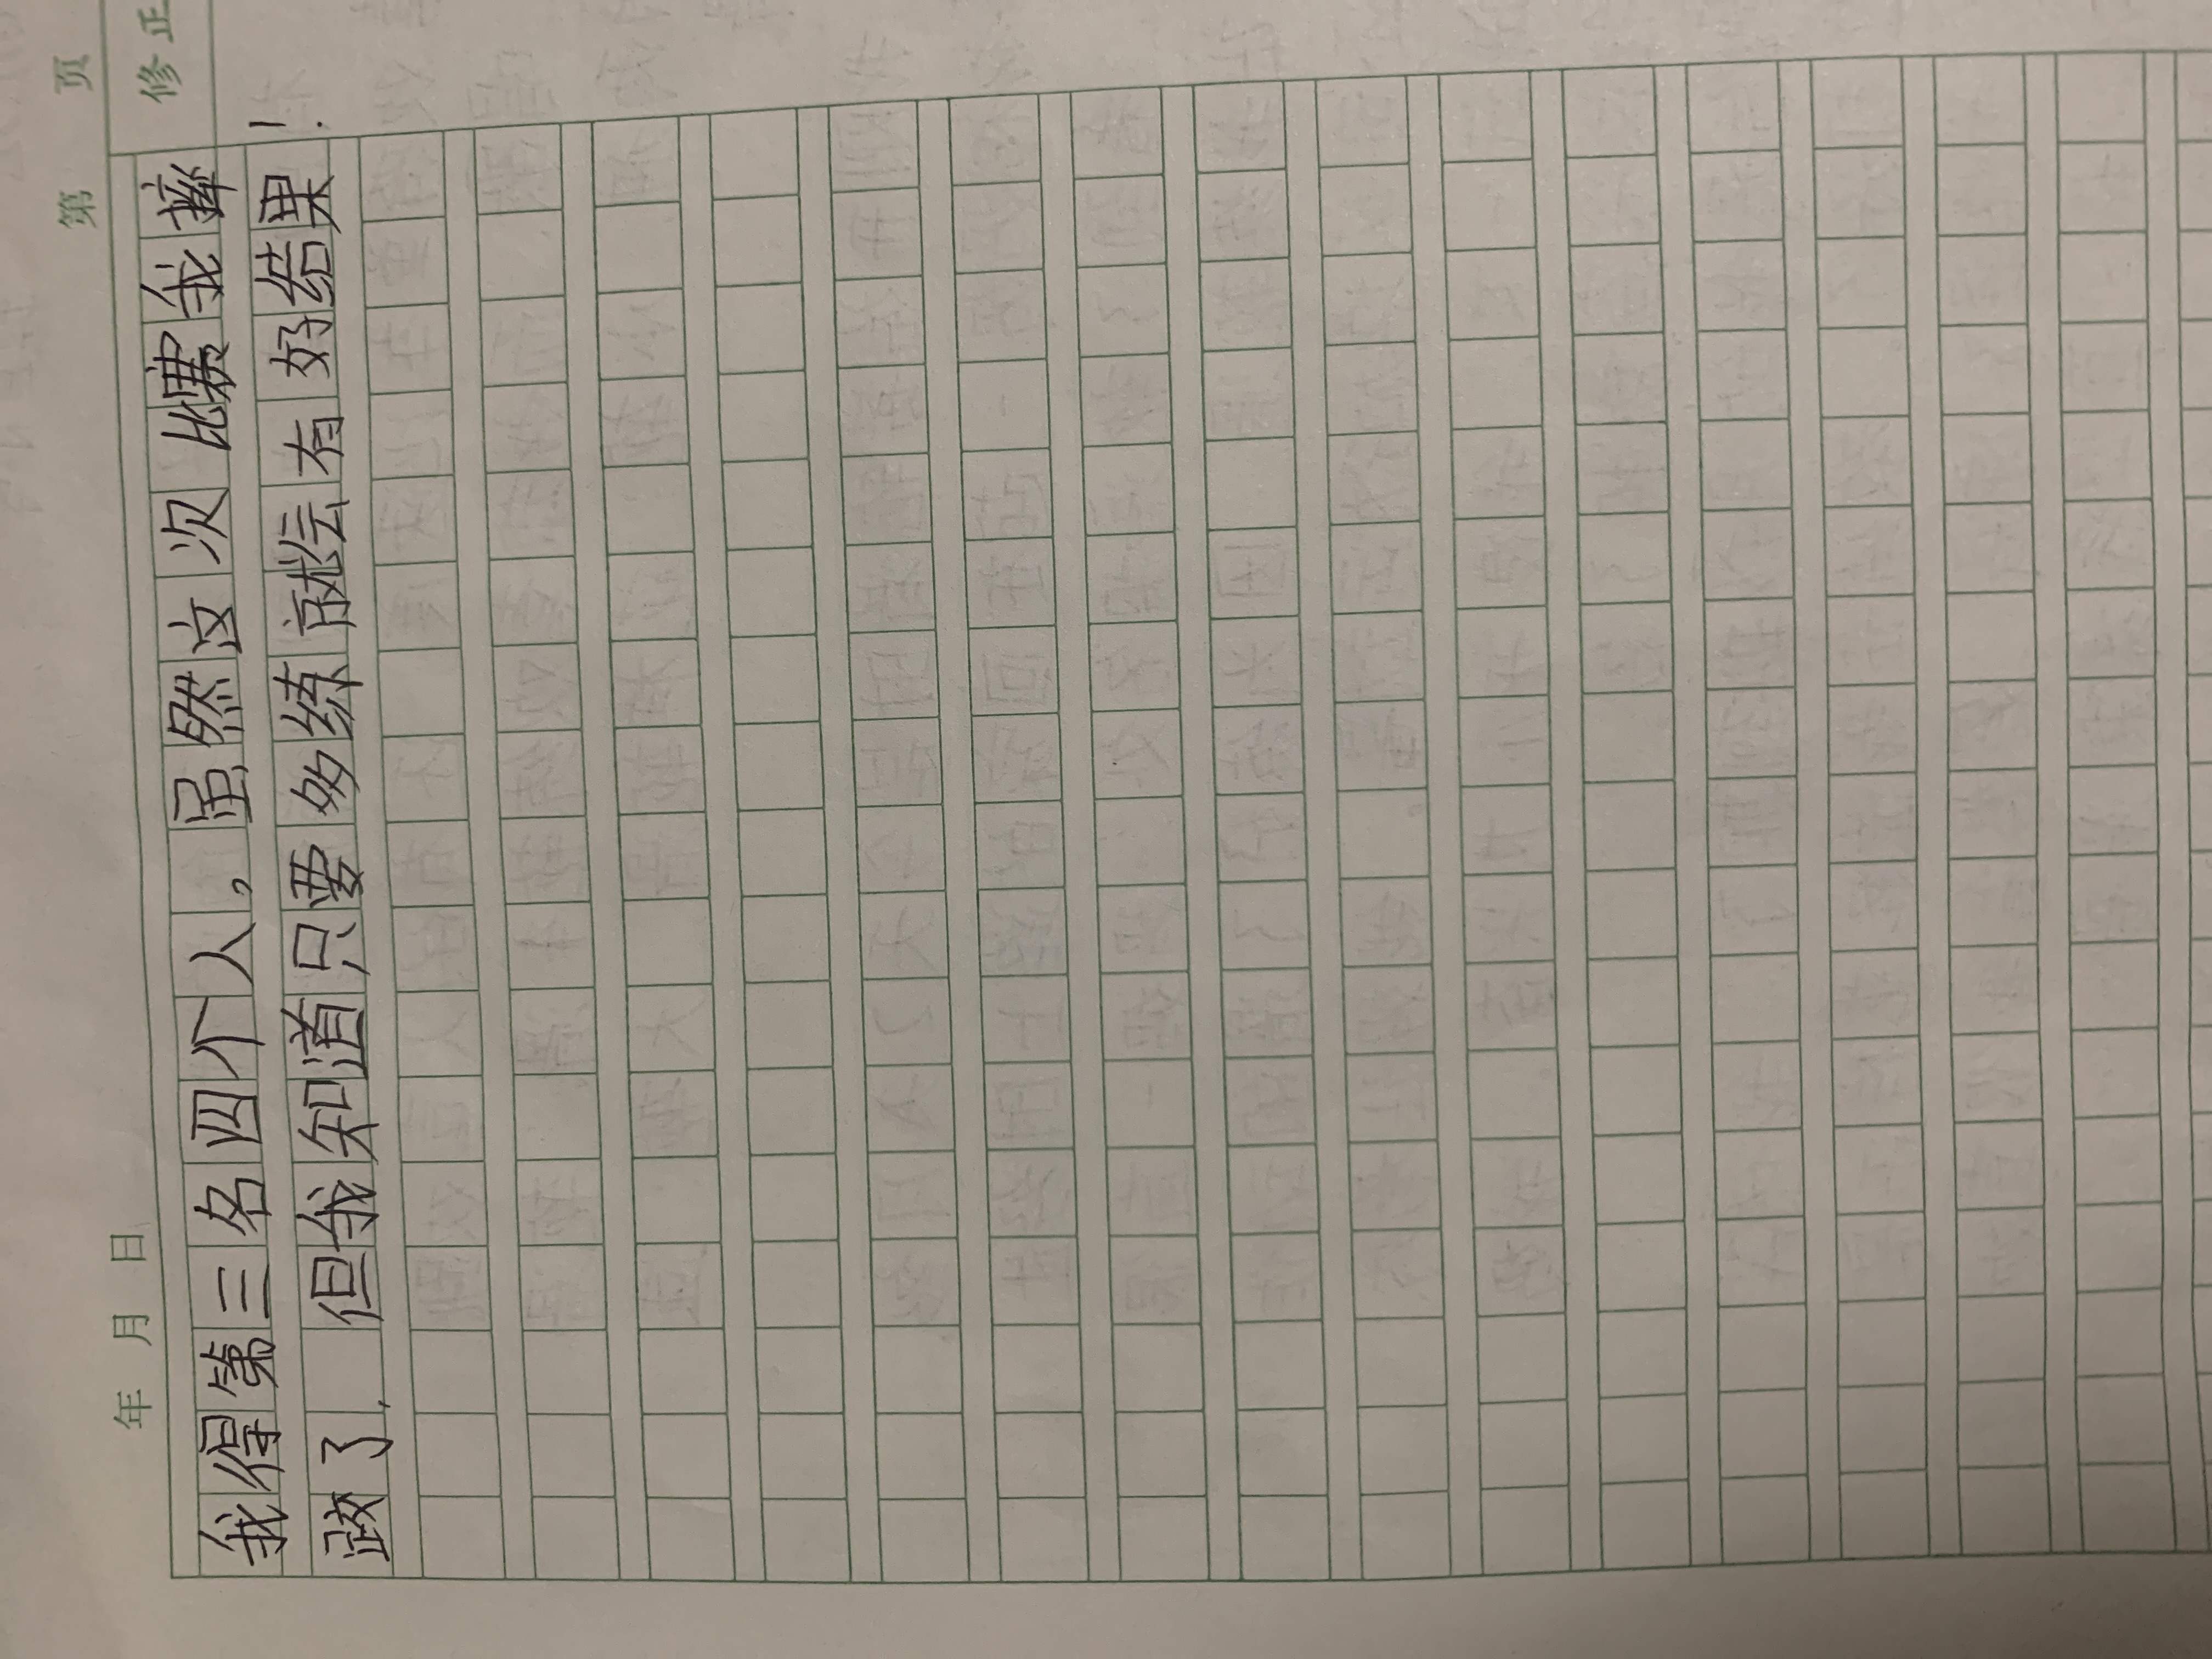 第 页
年 月 日
修正
我得第三名四个人。虽然这次比赛我摔
跤了,但我知道只要多练就会有好结果!